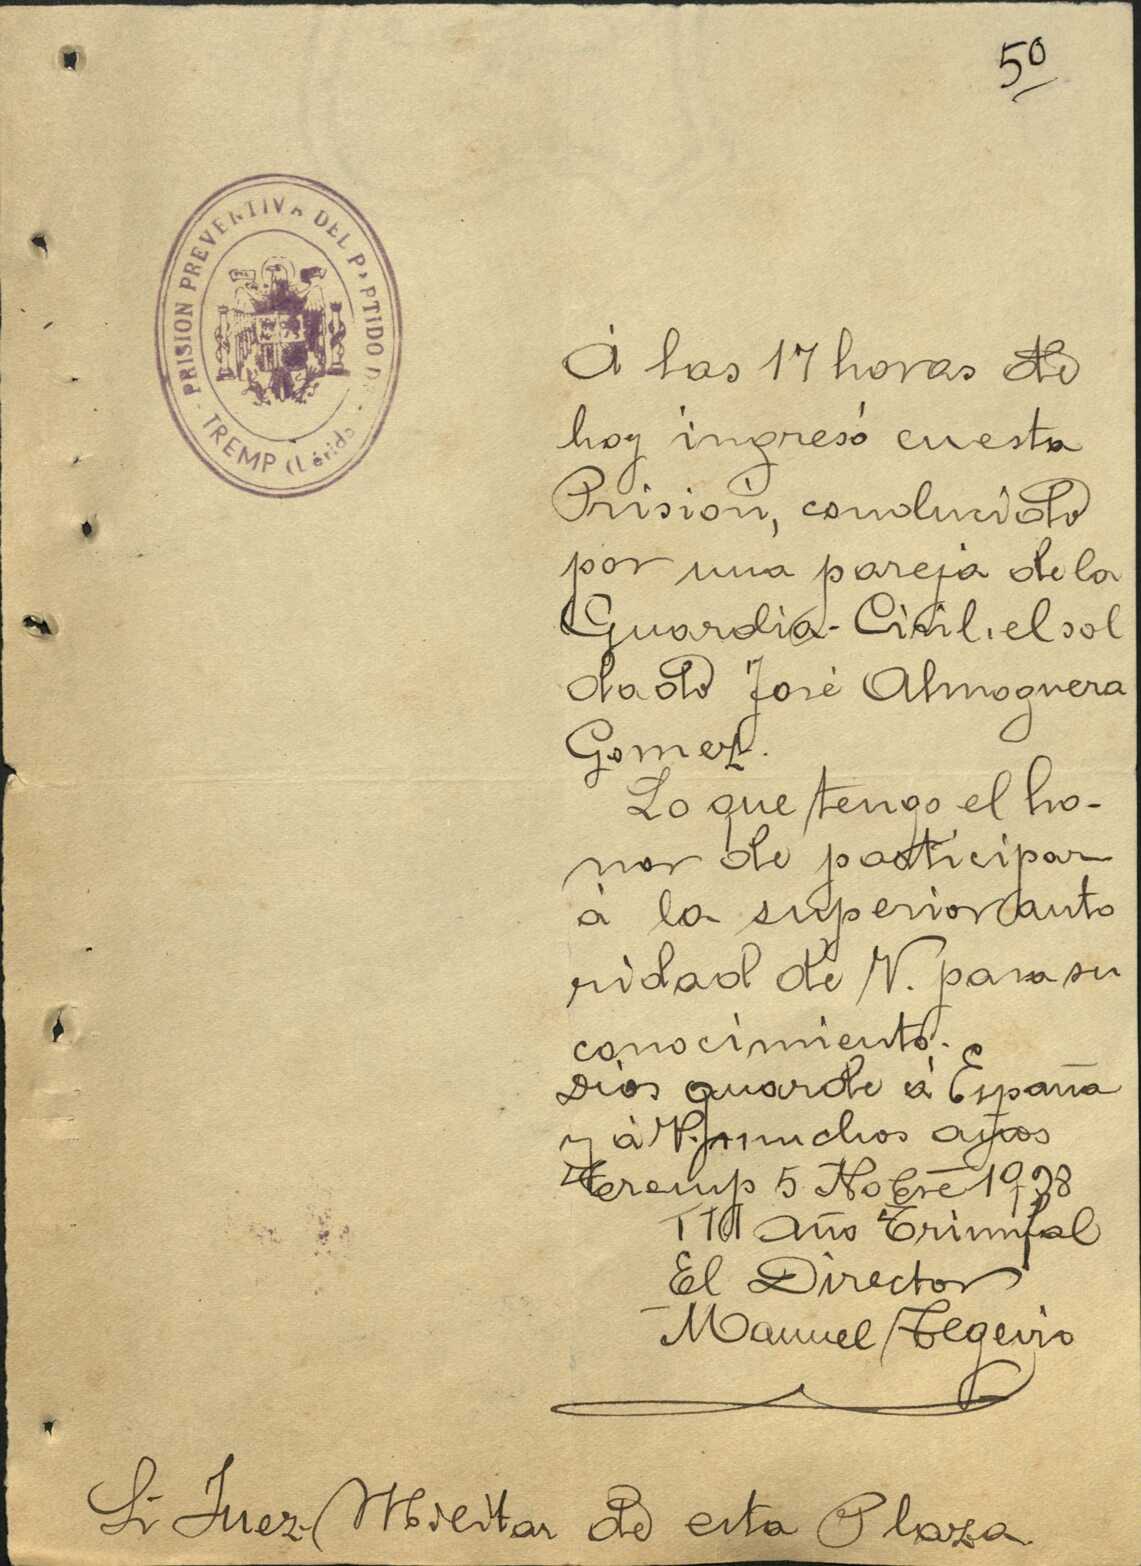 5º
PRISION PREVENTIVA DEL PARTIDO DE
TREMP (Lérida)
Á las 17 horas de
hoy ingresó en esta
Prisión, conducido
por una pareja de la
Guardia-Civil, el sol
dado José Almoguera
Gomez.
Lo que tengo el ho-
nor de participar
á la superior auto
ridad de V. para su
conocimiento.
Dios guarde á España
y á V. muchos años
Tremp 5 Nobre 1938
III año Triunfal
El Director
Manuel
Sr Juez Militar de esta Plaza